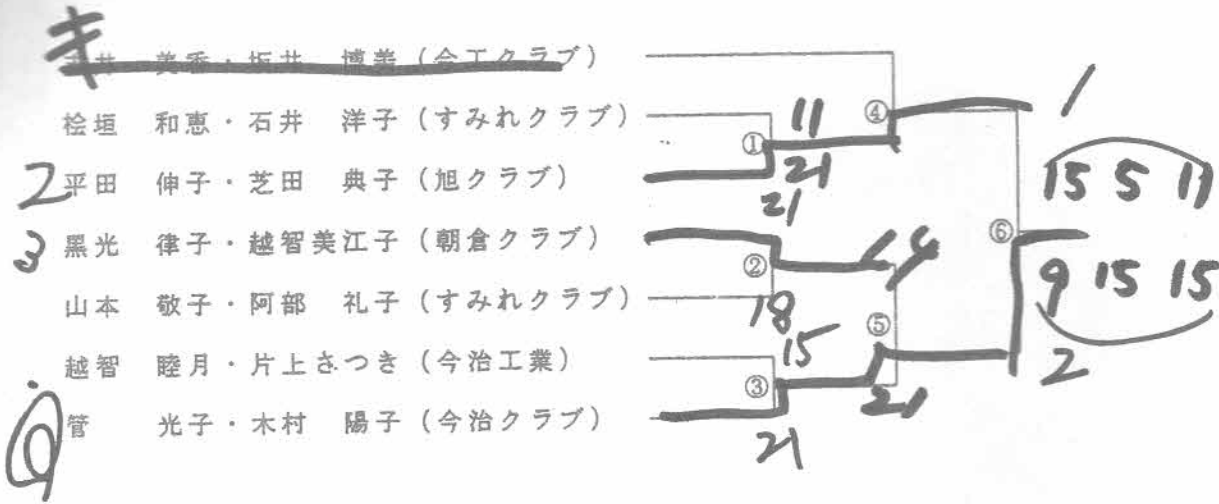 美香・坂井 博美 (今工クラブ)
桧垣 和恵・石井 洋子 (すみれクラブ)
2 平田 伸子・芝田 典子 (旭クラブ)
3 黒光 律子・越智美江子 (朝倉クラブ)
山本 敬子・阿部 礼子 (すみれクラブ)
越智 睦月・片上さつき (今治工業)
管 光子・木村 陽子 (今治クラブ)
① 11
21
21
②
18
15
③
21
④
⑤
21
⑥
1
15 5 11
9 15 15
2